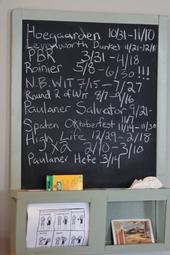 Hoegaarden 10/31-11/10
Levenworth Dunkel 4/21-12/18
PBR 3/31-4/18
Rainier 5/8-6/30 !!!
N.B. WIT 7/15-7/27
Round 2 of WIT 8/7-9/16
Paulaner Salvator 9/21-
Spaten Oktoberfest 11/14-11/30
High Life 12/29-2/18
XX 2/20-3/10
Paulaner Hefe 3/14